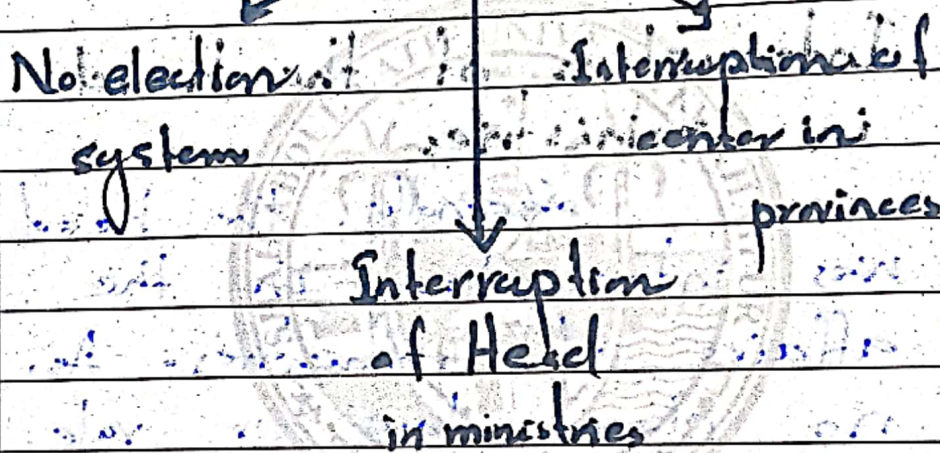 No election
system
Interruption of
center in
provinces
Interruption
of Head
in ministries